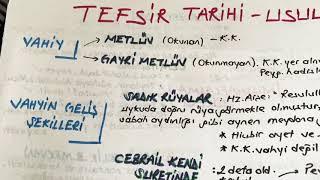 TEFSİR TARİHİ - USUL
VAHİY
METLÜV (Okunan) - K.K.
GAYRİ METLÜV (Okunmayan). K.K. yer alm
Peyg. hadisle
VAHYİN GELİŞ
ŞEKİLLERİ
SADIK RÜYALAR : Hz. Aişe; "Resulull
uykuda doğru rüya görmekle olmuştur,
sabah aydınlığı gibi aynen meydana
* Hiçbir ayet ve
* K.K. vahyi değil
CEBRAİL KENDİ : 2 defa old.
SURETİNDE